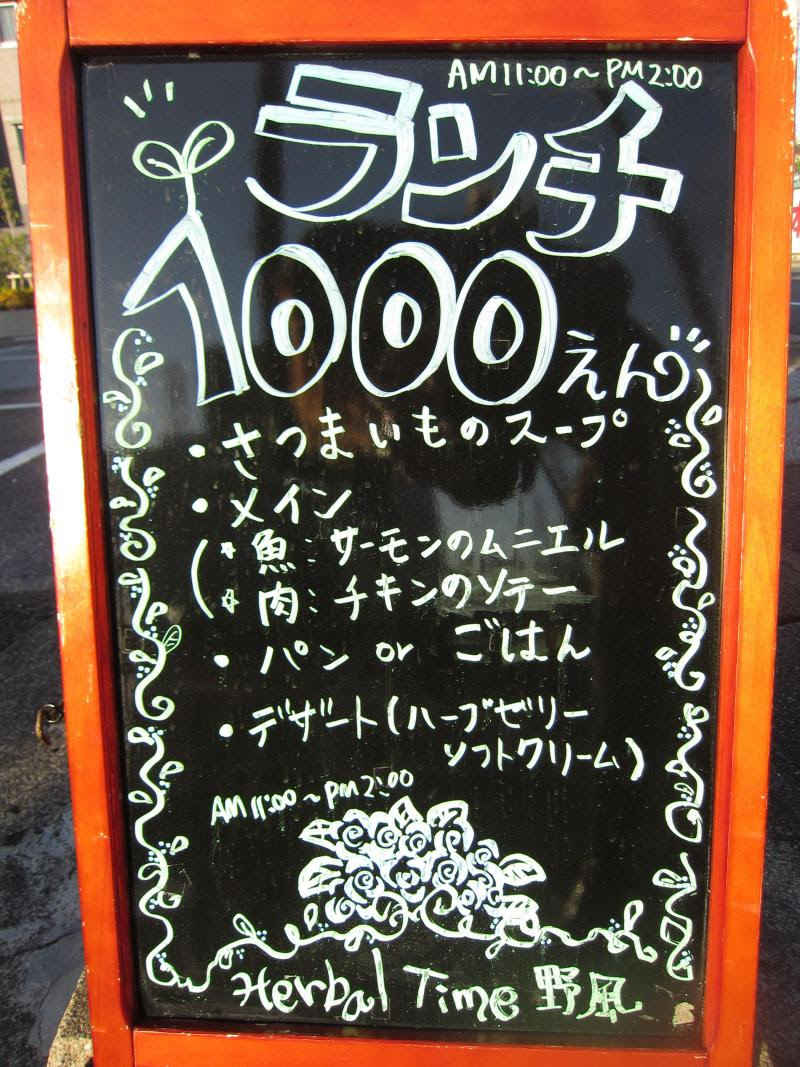 AM11:00～PM2:00
ランチ
1000えん
・さつまいものスープ
・メイン
(☆魚:サーモンのムニエル
☆肉:チキンのソテー
・パン or ごはん
・デザート(ハーブゼリー
ソフトクリーム)
AM11:00～PM2:00
Herbal Time 野風